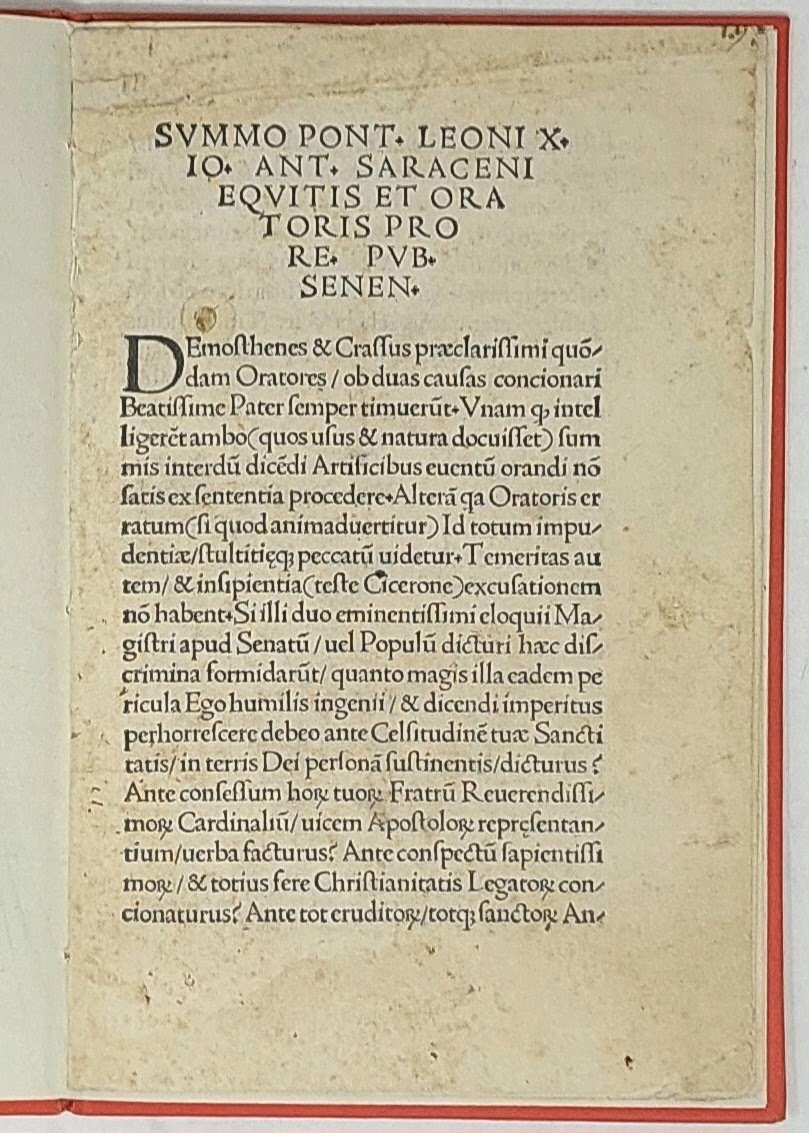 SVMMO PONT. LEONI X.
IO. ANT. SARACENI
EQVITIS ET ORA
TORIS PRO
RE. PVB.
SENEN.
DEmoſthenes & Craſſus præclariſſimi quō/
dam Oratores / ob duas cauſas concionari
Beatiſſime Pater ſemper timuerūt. Vnam ꝙ intel
ligerēt ambo (quos uſus & natura docuiſſet) ſum
mis interdū dicēdi Artificibus euentū orandi nō
ſatis ex ſententia procedere. Alterā qa Oratoris er
ratum (ſi quod animaduertitur) Id totum impu/
dentiæ/ſtultitięqꝫ peccatū uidetur. Temeritas au
tem/ & inſipientia (teſte Cicerone) excuſationem
nō habent. Si illi duo eminentiſſimi eloquii Ma/
giſtri apud Senatū / uel Populū dicturi hæc diſ/
crimina formidarūt/ quanto magis illa eadem pe
ricula Ego humilis ingenii / & dicendi imperitus
perhorreſcere debeo ante Celſitudinē tuæ Sancti
tatis/ in terris Dei perſonā ſuſtinentis/dicturus?
Ante conſeſſum hoꝝ tuoꝝ Fratrū Reuerendiſſi/
moꝝ Cardinaliū/ uicem Apoſtoloꝝ repręſentan/
tium/uerba facturus? Ante conſpectū ſapientiſſi
moꝝ / & totius fere Chriſtianitatis Legatoꝝ con/
cionaturus? Ante tot eruditoꝝ/totqꝫ ſanctoꝝ An/